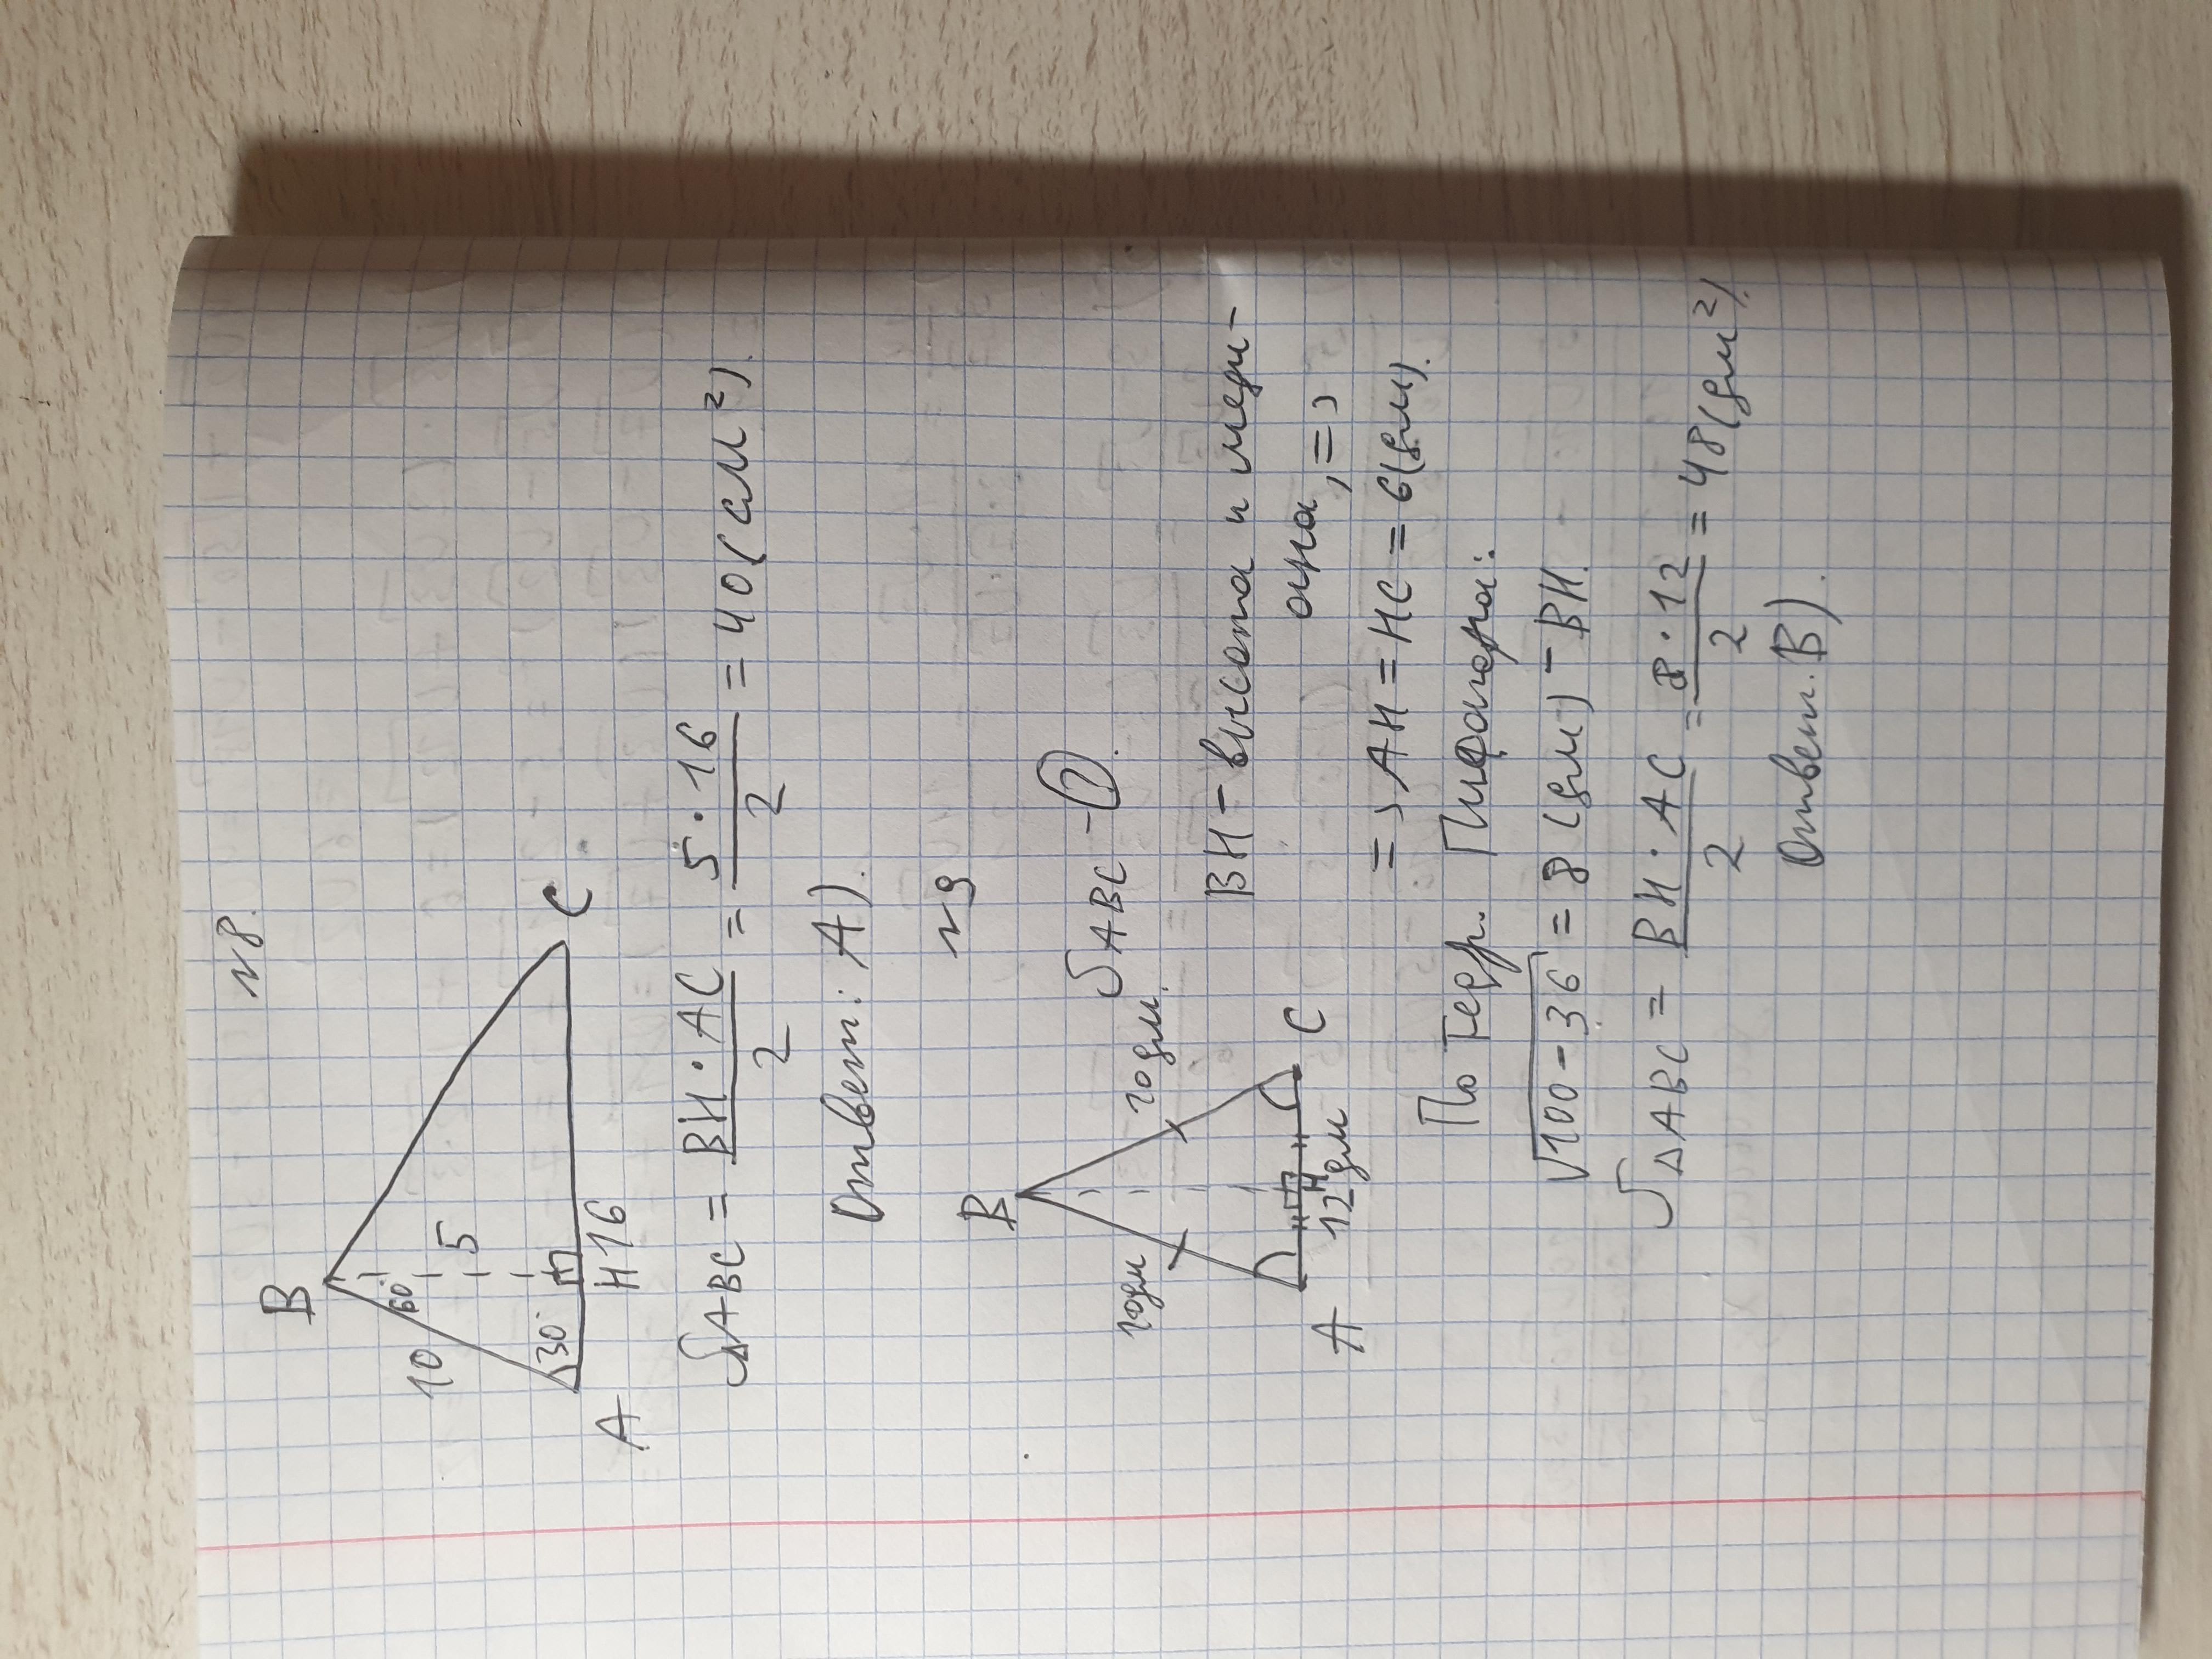 №8.
B
10 60° 5
30°
A H 16 C
S△ABC = BH · AC / 2 = 5 · 16 / 2 = 40 (см²).
Ответ: А).
№9
B
10дм 10дм.
A 12 H C
дм
SABC - ?.
BH - высота и меди-
ана, =>
=> AH = HC = 6(дм).
По теор. Пифагора:
√100-36 = 8 (дм) - BH.
S△ABC = BH · AC / 2 = 8 · 12 / 2 = 48(дм²).
Ответ. В).